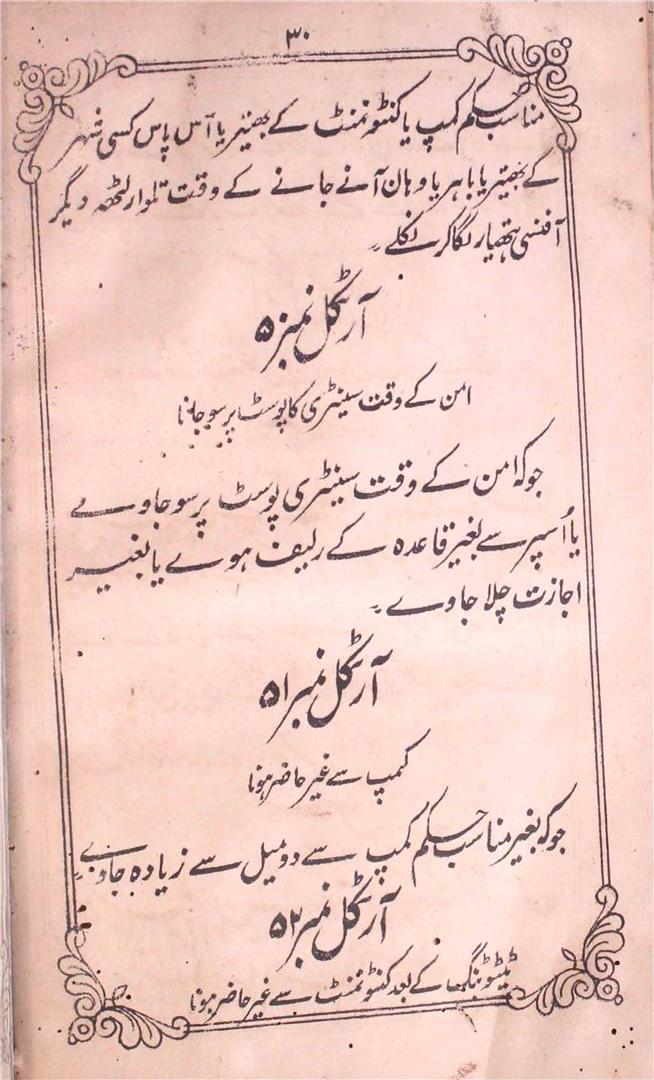 ۳۰
مناسب حکم کمپ یا کنٹونمنٹ کے بھیتر یا آس پاس کسی شہر
کے بھیتر یا باہر یا وہان آنے جانے کے وقت تلوار لٹھ دیگر
آفنسی ہتھیار لگا کر نکلے۔
آرٹکل نمبر ۵۰
امن کے وقت سینٹری کا پوسٹ پر سو جانا
جو کہ امن کے وقت سینٹری پوسٹ پر سو جاوے
یا اُسپر سے بغیر قاعدہ کے رلیف ہوے یا بغیر
اجازت چلا جاوے۔
آرٹکل نمبر ۵۱
کمپ سے غیر حاضر ہونا
جو کہ بغیر مناسب حکم کمپ سے دو میل سے زیادہ جاوے۔
آرٹکل نمبر ۵۲
ٹیٹو بنگ کے بعد کنٹونمنٹ سے غیر حاضر ہونا